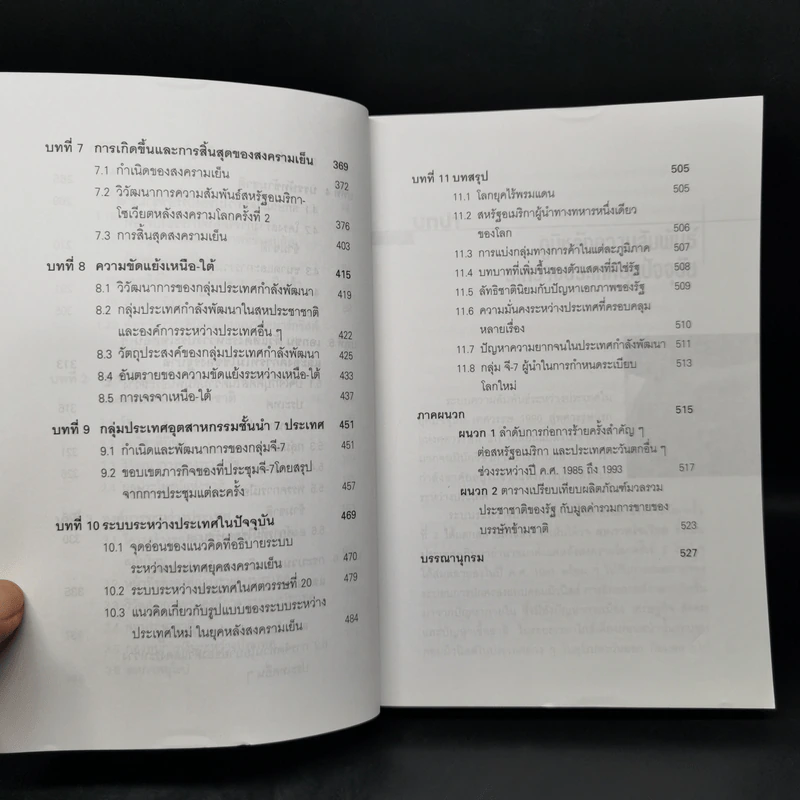 บทที่ 7 การเกิดขึ้นและการสิ้นสุดของสงครามเย็น 369
7.1 กำเนิดของสงครามเย็น 372
7.2 วิวัฒนาการความสัมพันธ์สหรัฐอเมริกา-
โซเวียตหลังสงครามโลกครั้งที่ 2 376
7.3 การสิ้นสุดสงครามเย็น 403
บทที่ 8 ความขัดแย้งเหนือ-ใต้ 415
8.1 วิวัฒนาการของกลุ่มประเทศกำลังพัฒนา 419
8.2 กลุ่มประเทศกำลังพัฒนาในสหประชาชาติ
และองค์การระหว่างประเทศอื่น ๆ 422
8.3 วัตถุประสงค์ของกลุ่มประเทศกำลังพัฒนา 425
8.4 อันตรายของความขัดแย้งระหว่างเหนือ-ใต้ 433
8.5 การเจรจาเหนือ-ใต้ 437
บทที่ 9 กลุ่มประเทศอุตสาหกรรมชั้นนำ 7 ประเทศ 451
9.1 กำเนิดและพัฒนาการของกลุ่มจี-7 451
9.2 ขอบเขตภารกิจของที่ประชุมจี-7โดยสรุป
จากการประชุมแต่ละครั้ง 457
บทที่ 10 ระบบระหว่างประเทศในปัจจุบัน 469
10.1 จุดอ่อนของแนวคิดที่อธิบายระบบ
ระหว่างประเทศยุคสงครามเย็น 470
10.2 ระบบระหว่างประเทศในศตวรรษที่ 20 479
10.3 แนวคิดเกี่ยวกับรูปแบบของระบบระหว่าง
ประเทศใหม่ ในยุคหลังสงครามเย็น 484
บทที่ 11 บทสรุป 505
11.1 โลกยุคไร้พรมแดน 505
11.2 สหรัฐอเมริกาผู้นำทางทหารหนึ่งเดียว
ของโลก 506
11.3 การแบ่งกลุ่มทางการค้าในแต่ละภูมิภาค 507
11.4 บทบาทที่เพิ่มขึ้นของตัวแสดงที่มิใช่รัฐ 508
11.5 ลัทธิชาตินิยมกับปัญหาเอกภาพของรัฐ 509
11.6 ความมั่นคงระหว่างประเทศที่ครอบคลุม
หลายเรื่อง 510
11.7 ปัญหาความยากจนในประเทศกำลังพัฒนา 511
11.8 กลุ่ม จี-7 ผู้นำในการกำหนดระเบียบ
โลกใหม่ 513
ภาคผนวก 515
ผนวก 1 ลำดับการก่อการร้ายครั้งสำคัญ ๆ
ต่อสหรัฐอเมริกา และประเทศตะวันตกอื่น ๆ
ช่วงระหว่างปี ค.ศ. 1985 ถึง 1993 517
ผนวก 2 ตารางเปรียบเทียบผลิตภัณฑ์มวลรวม
ประชาชาติของรัฐ กับมูลค่ารวมการขายของ
บรรษัทข้ามชาติ 523
บรรณานุกรม 527